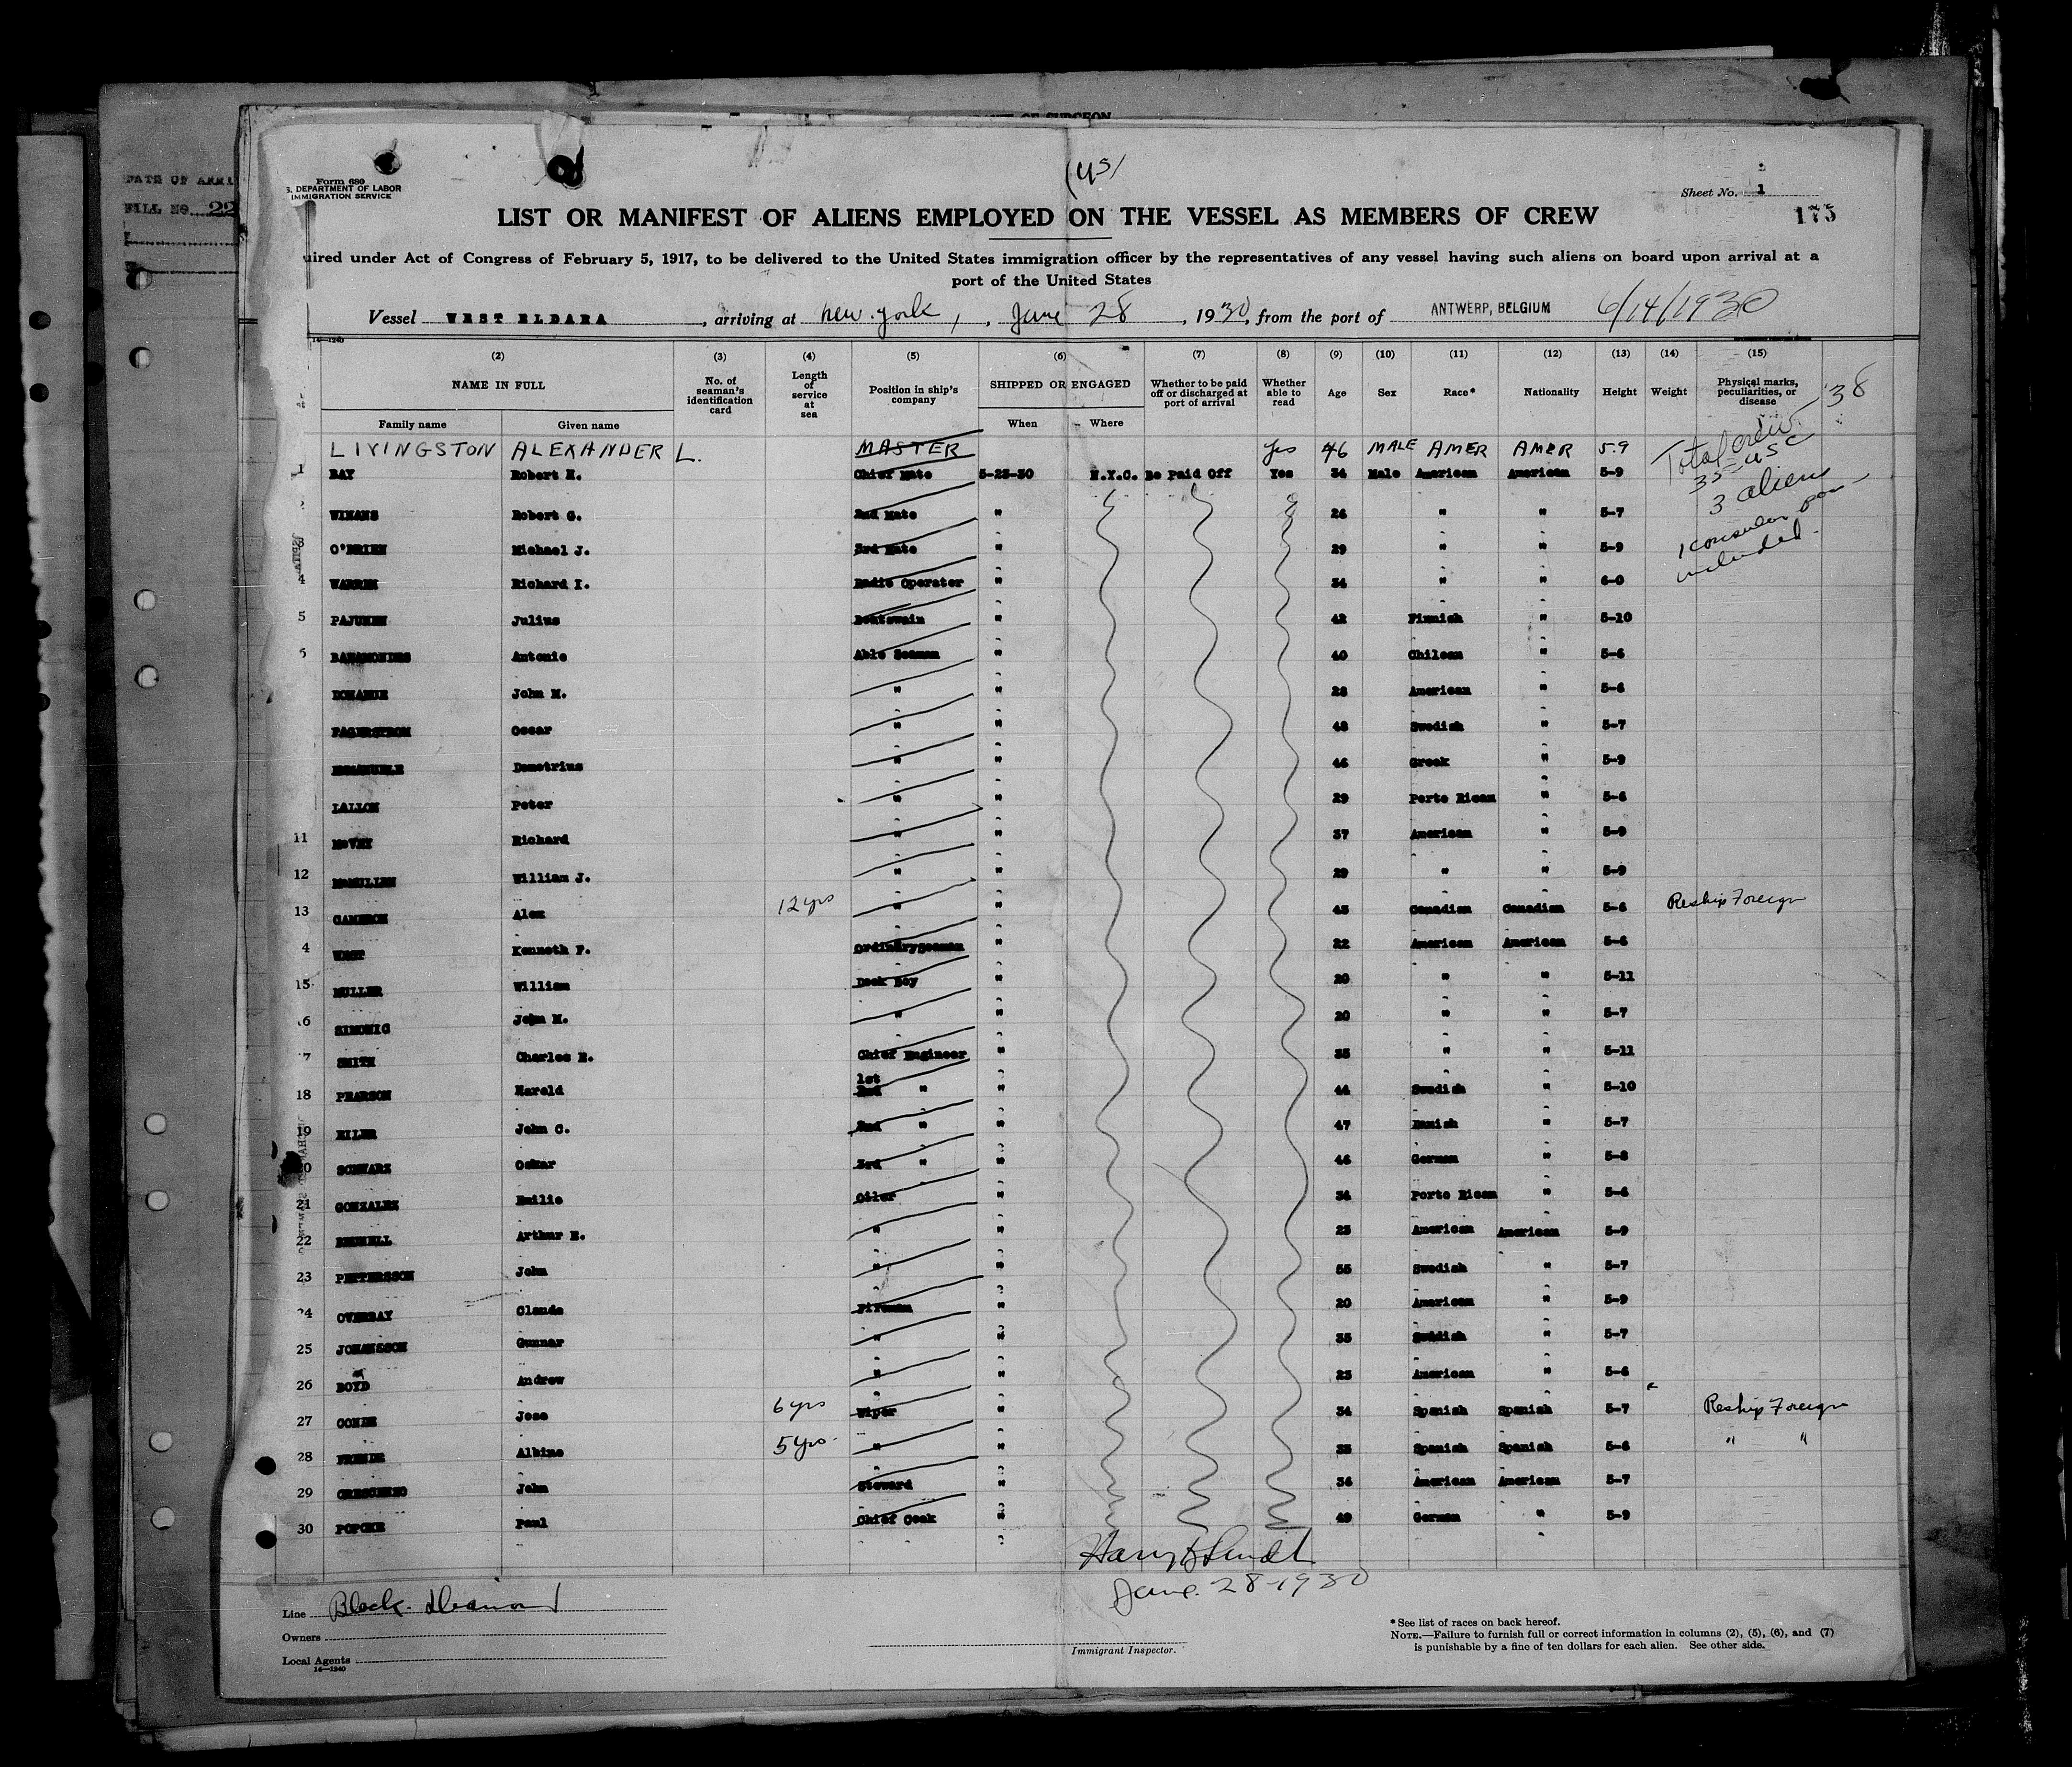 DATE OF ARRI
FILE NO. 22
OF SURGEON
(45)
Form 680
S. DEPARTMENT OF LABOR
IMMIGRATION SERVICE
Sheet No. 1
175
LIST OR MANIFEST OF ALIENS EMPLOYED ON THE VESSEL AS MEMBERS OF CREW
uired under Act of Congress of February 5, 1917, to be delivered to the United States immigration officer by the representatives of any vessel having such aliens on board upon arrival at a
port of the United States
Vessel WEST ELDARA, arriving at New York, June 28, 1930, from the port of ANTWERP, BELGIUM 6/14/1930
14-1240
(2) (3) (4) (5) (6) (7) (8) (9) (10) (11) (12) (13) (14) (15)
NAME IN FULL No. of seaman's identification card Length of service at sea Position in ship's company SHIPPED OR ENGAGED Whether to be paid off or discharged at port of arrival Whether able to read Age Sex Race* Nationality Height Weight Physical marks, peculiarities, or disease
Family name Given name When Where
Total crew 38
35 USC
3 aliens
1 consular
included.
LIVINGSTON ALEXANDER L. MASTER Yes 46 MALE AMER AMER 5.9
1 BAY Robert H. Chief Mate 5-23-30 N.Y.C. Be Paid Off Yes 34 Male American American 5-9
WINANS Robert G. 2nd Mate " 26 " " 5-7
3 O'BRIEN Michael J. 3rd Mate " 29 " " 5-9
4 WARREN Richard I. Radio Operator " 34 " " 6-0
5 PAJUNEN Julius Boatswain " 42 Finnish " 5-10
BAHAMONDES Antonio Able Seaman " 40 Chilean " 5-6
John M. " " 28 American " 5-6
FAGERSTROM Oscar " " 48 Swedish " 5-7
EMMANUELE Demetrius " " 46 Greek " 5-9
LALLON Peter " " 29 Porto Rican " 5-6
11 McVEY Richard " " 37 American " 5-9
12 McMULLEN William J. " " 29 " " 5-9
13 CAMERON Alex 12 yrs " " 45 Canadian Canadian 5-6 Reship Foreign
4 WEST Kenneth F. Ordinaryseaman " 22 American American 5-6
15 MULLER William Deck Boy " 20 " " 5-11
6 SIMONIG John M. " " 20 " " 5-7
7 SMITH Charles E. Chief Engineer " 35 " " 5-11
18 PEARSON Harold 1st 2nd " " 44 Swedish " 5-10
19 EILER John C. 2nd " " 47 Danish " 5-7
20 SCHWARZ Oskar 3rd " " 46 German " 5-8
21 GONZALEZ Emilio Oiler " 34 Porto Rican " 5-6
22 Arthur E. " " 23 American American 5-9
23 PETTERSSON John " " 55 Swedish " 5-7
24 OVERBAY Claude Fireman " 20 American " 5-9
25 JOHANSSON Gunnar " " 35 Swedish " 5-7
26 BOYD Andrew " " 23 American " 5-6
27 CONDE Jose 6 yrs Wiper " 34 Spanish Spanish 5-7 Reship Foreign
28 Albino 5 yrs. " " 35 Spanish Spanish 5-6 " "
29 John Steward " 36 American American 5-7
30 POPCKE Paul Chief Cook " 49 German " 5-9
June 28-1930
Line Black Diamond
Owners
Local Agents
14-1240
Immigrant Inspector.
* See list of races on back hereof.
NOTE.—Failure to furnish full or correct information in columns (2), (5), (6), and (7)
is punishable by a fine of ten dollars for each alien. See other side.